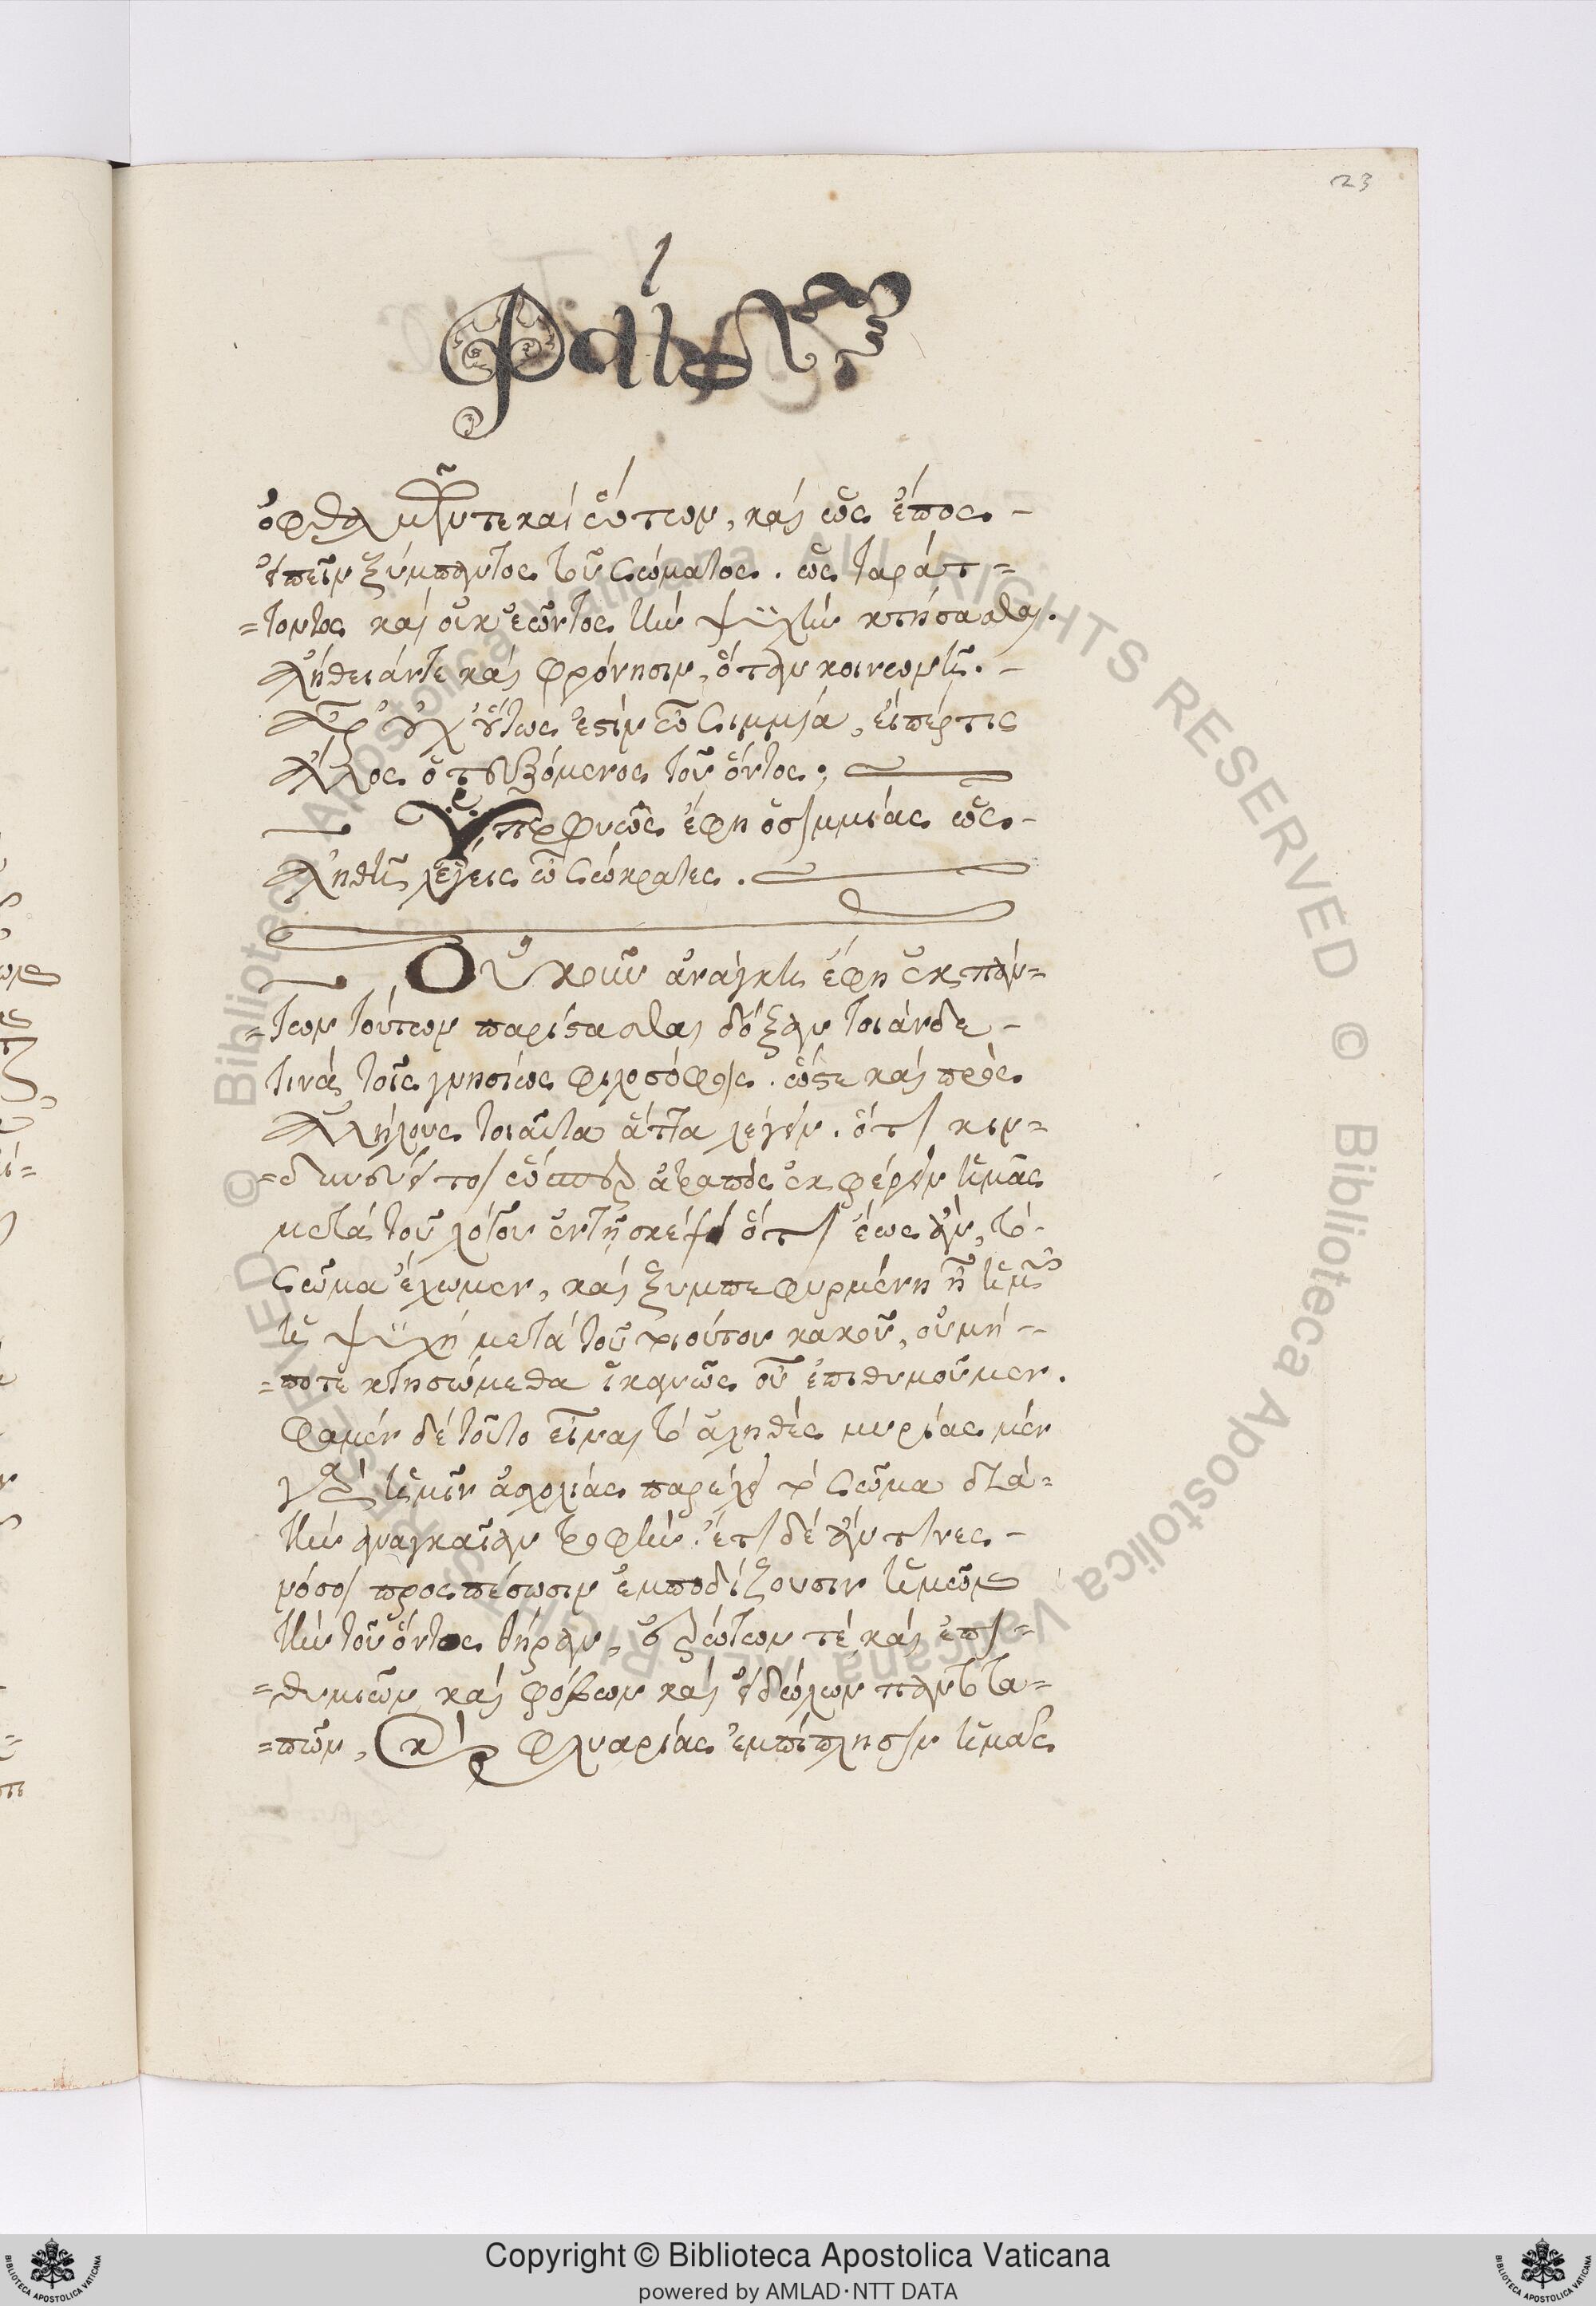 23
Φαίδων
ὀφθαλμῶντε καὶ ὤτων, καὶ ὡς ἔπος -
εἰπεῖν ξύμπαντος τοῦ σώματος. ὡς ταράτ=
=τοντος καὶ οὐκ ἐῶντος τὴν ψϋχὴν κτήσασθαι.
ἀλήθειάντε καὶ φρόνησιν, ὅταν κοινωνῇ. -
ἆρ' οὐχ' οὕτως ἐστὶν ὦ Σιμμία, εἰπέρ τις
ἄλλος ὁ τευξόμενος τοῦ ὄντος;
Ὑπερφυῶς ἔφη ὁσιμμίας ὡς -
ἀληθῆ λέγεις ὦ Σώκρατες.
Οὐκοῦν ἀνάγκη ἔφη ἐκ πάν=
=των τούτων παρίστασθαι δόξαν τοιάνδε -
τινὰ τοῖς γνησίως φιλοσόφοις. ὥστε καὶ πρὸς
ἀλλήλους τοιαῦτα ἄττα λέγειν. ὅτι κιν=
=δυνεύει τοι ὥσπερ ἀτραπὸς ἐκφέρειν ἡμᾶς
μετὰ τοῦ λόγου ἐντῇ σκέψει ὅτι ἕως ἂν, τὸ
σῶμα ἔχωμεν, καὶ ξυμπεφυρμένη ᾖ ἡμῶν
ἡ ψϋχὴ μετὰ τοῦ τοιούτου κακοῦ, οὐμή -
=ποτε κτησώμεθα ἱκανῶς οὗ ἐπιθυμοῦμεν.
Φαμὲν δὲ τοῦτο εἶναι τὸ ἀληθές μυρίας μὲν
γὰρ ἡμῖν ἀσχολίας παρέχει τὸ σῶμα διὰ=
τὴν ἀναγκαῖαν τροφὴν. ἔτι δὲ ἄν τινες -
νόσοι προςπέσωσιν ἐμποδίζουσιν ἡμῶν
τὴν τοῦ ὄντος θήραν, ἐρώτων τὲ καὶ ἐπι=
=θυμιῶν καὶ φόβων καὶ εἰδώλων παντοτα=
=πῶν, καὶ φλυαρίας ἐμπίπλησιν ἡμᾶς
Copyright © Biblioteca Apostolica Vaticana
powered by AMLAD・NTT DATA